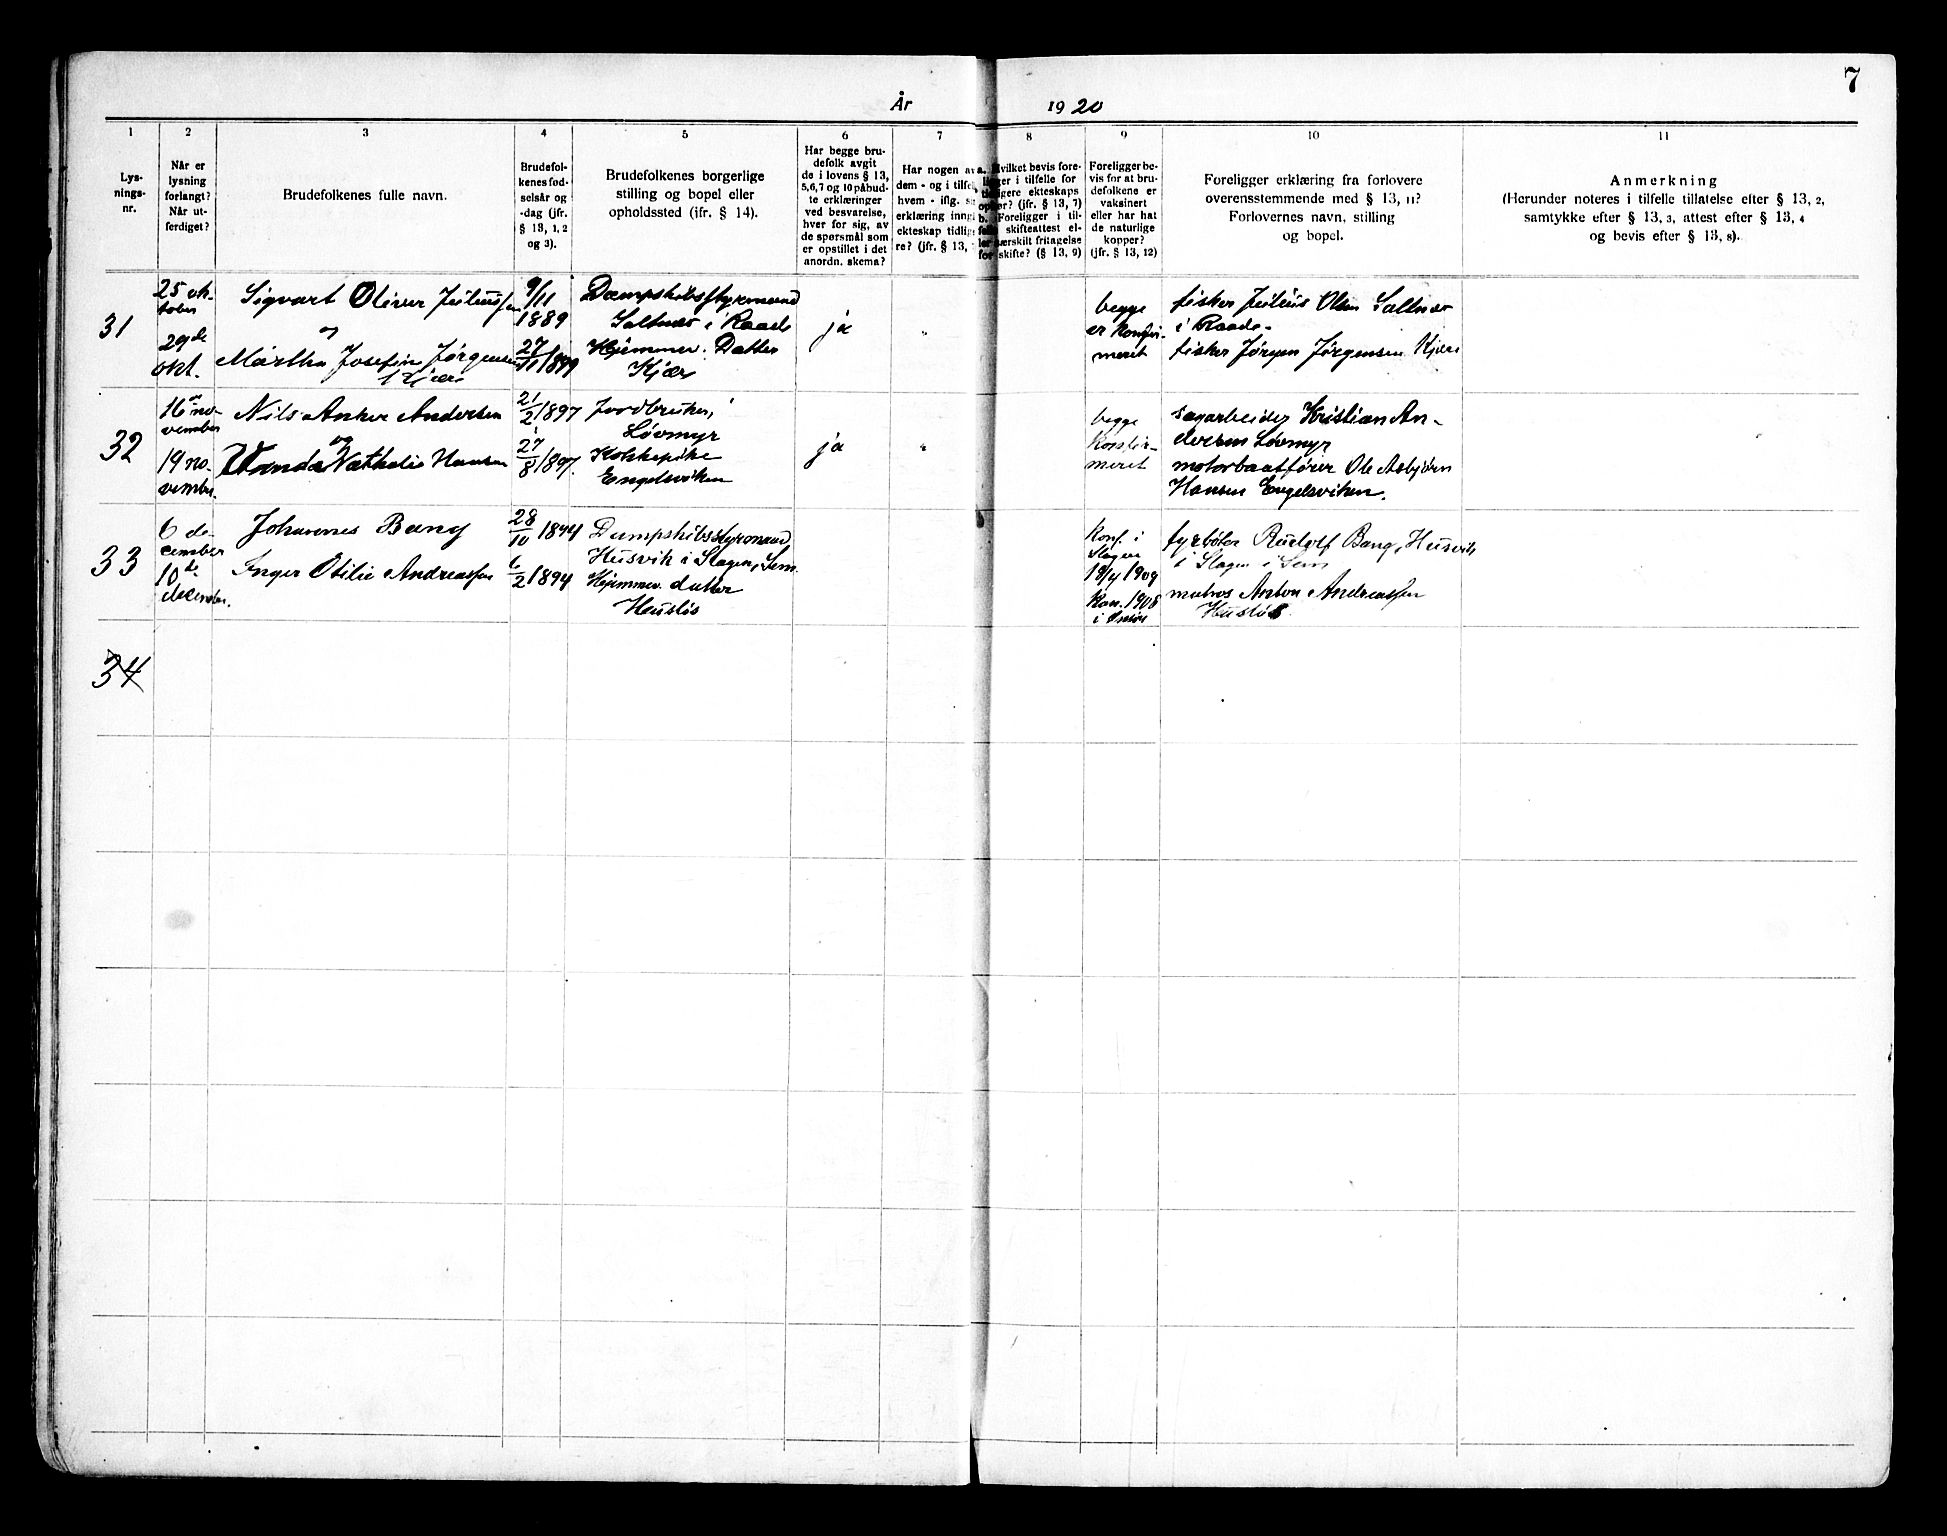 7
År 1920
1 2 3 4 5 6 7 8 9 10 11
Lys-
nings-
nr.
Når er
lysning
forlangt?
Når ut-
ferdiget?
Brudefolkenes fulle navn.
Brudefol-
kenes fød-
selsår og
-dag (jfr.
§ 13, 1, 2
og 3).
Brudefolkenes borgerlige
stilling og bopel eller
opholdssted (ifr. § 14).
Har begge bru-
defolk avgit
de i lovens § 13,
5,6,7 og 10 påbud-
te erklæringer
ved besvarelse,
hver for sig, av
de spørsmål som
er opstillet i det
anordn. skema?
Har nogen av
dem - og i tilfel
hvem - iflg. s
erklæring inng
ekteskap tidlig
re? (jfr. § 13,
a. Hvilket bevis fore-
ligger i tilfelle for
tidligere ekteskaps
ophør? (jfr. § 13, 7)
b. Foreligger i til-
felle skifteattest el-
ler særskilt fritagelse
for skifte? (§ 13, 9)
Foreligger be-
vis for at bru-
defolkene er
vaksinert
eller har hat
de naturlige
kopper?
(jfr. § 13, 12)
Foreligger erklæring fra forlovere
overensstemmende med § 13, 11?
Forlovernes navn, stilling
og bopel.
Anmerkning
(Herunder noteres i tilfelle tillatelse efter § 13, 2,
samtykke efter § 13, 3, attest efter § 13, 4
og bevis efter § 13, 8).
31
25 ok-
tober
29de
okt.
Sigvart Oliver Juliussen
og
Martha Josefin Jørgensen
Kjær
9/11
1889
27/11 1899
Dampskibsstyrmand
Saltnes i Raade
Hjemmev. Datter
Kjær
ja
"
begge
er konfir-
meret
fisker Julius Olsen Saltnes
i Raade.
fisker Jørgen Jørgensen Kjær
32
16n no-
vember
19 no-
vember.
Nils Anker Andersen
og
Wanda Nathalie Hansen
21/2 1897
27/8 1897.
Jordbruker,
Løvmyr
Kokkepike
Engelsviken
ja
"
begge
konfir-
meret
sagarbeider Kristian An-
dersen Løvmyr
motorbaatfører Ole Asbjørn
Hansen Engelsviken.
33
6 de-
cember
10de
december.
Johannes Bang
Inger Otilie Andreassen
28/10 1894
6/2 1894
Dampskibsstyrmand
Husvik i Slagen, Sem.
Hjemmev. datter
Husløs
Konf. i
Slagen
19/4 1909
Kon. 1908
i Onsø
fyrbøter Rudolf Bang, Husvik
i Slagen i Sem
matros Anton Andreassen
Husløs
34